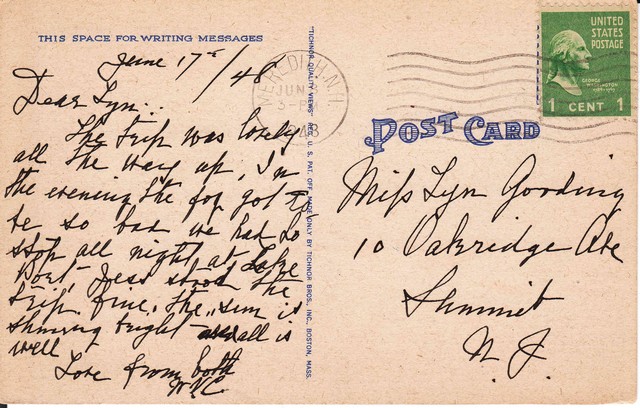 THIS SPACE FOR WRITING MESSAGES
June 17th / 48
Dear Lyn..
The trip was lovely
all the way up, In
the evening the fog got to
be so bad we had to
stop all night at Lake
Port, Jess stood the
trip fine. The sun is
shining bright all is
well
Love from both
"TICHNOR QUALITY VIEWS" REG. U. S. PAT. OFF. MADE ONLY BY TICHNOR BROS. INC., BOSTON, MASS.
MEREDITH, N.H.
JUN
3-PM
UNITED
STATES
POSTAGE
GEORGE
WASHINGTON
1 CENT 1
POST CARD
Miss Lyn Gooding
10 Oakridge Ave
Summit
N. J.